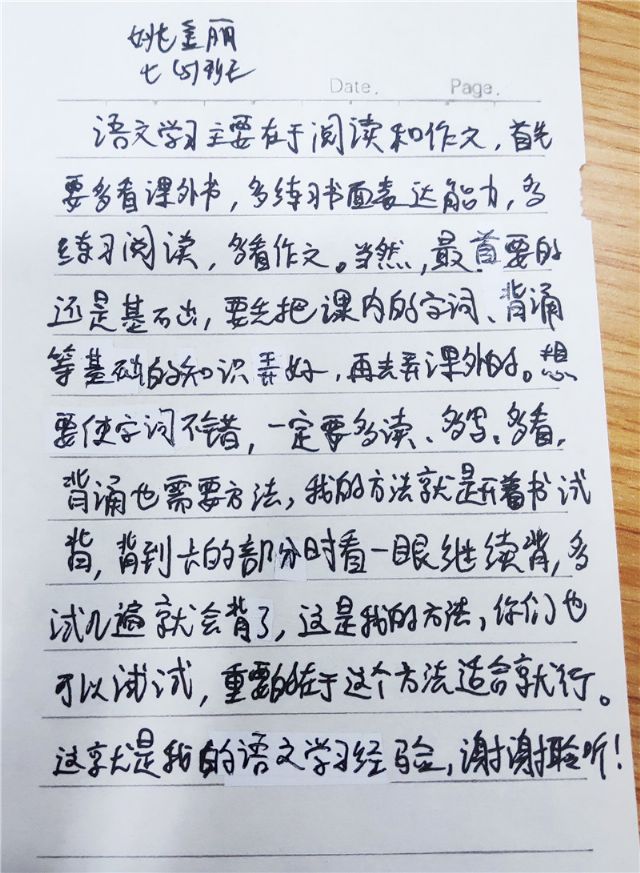 姚金丽
七(5)班
Date. Page.
语文学习主要在于阅读和作文，首先
要多看课外书，多练习书面表达能力，多
练习阅读，多看作文。当然，最首要的
还是基础，要先把课内的字词、背诵
等基础的知识弄好，再去弄课外的。想
要使字词不错，一定要多读、多写、多看，
背诵也需要方法，我的方法就是开着书试
背，背到卡的部分时看一眼继续背，多
试几遍就会背了，这是我的方法，你们也
可以试试，重要的在于这个方法适合就行。
这就是我的语文学习经验，谢谢聆听！